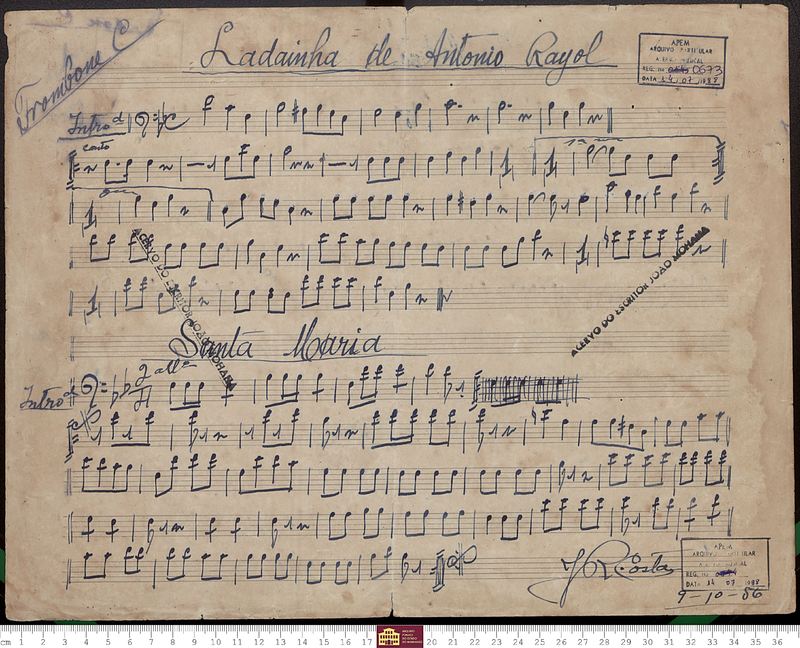 Trombone C
Ladainha de Antonio Rayol
APEM
ARQUIVO PARTICULAR
REG. No 0673
DATA 14.07.1988
Introd
canto
ACERVO DO ESCRITOR JOÃO MOHANA
ACERVO DO ESCRITOR JOÃO MOHANA
Santa Maria
Introd
2
4
allo
J R Costa
APEM
DATA 14 07 1988
9-10-56
cm 1 2 3 4 5 6 7 8 9 10 11 12 13 14 15 16 17 20 21 22 23 24 25 26 27 28 29 30 31 32 33 34 35 36